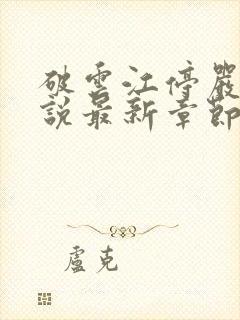 破雲江停嚴
說最新章節
盧克